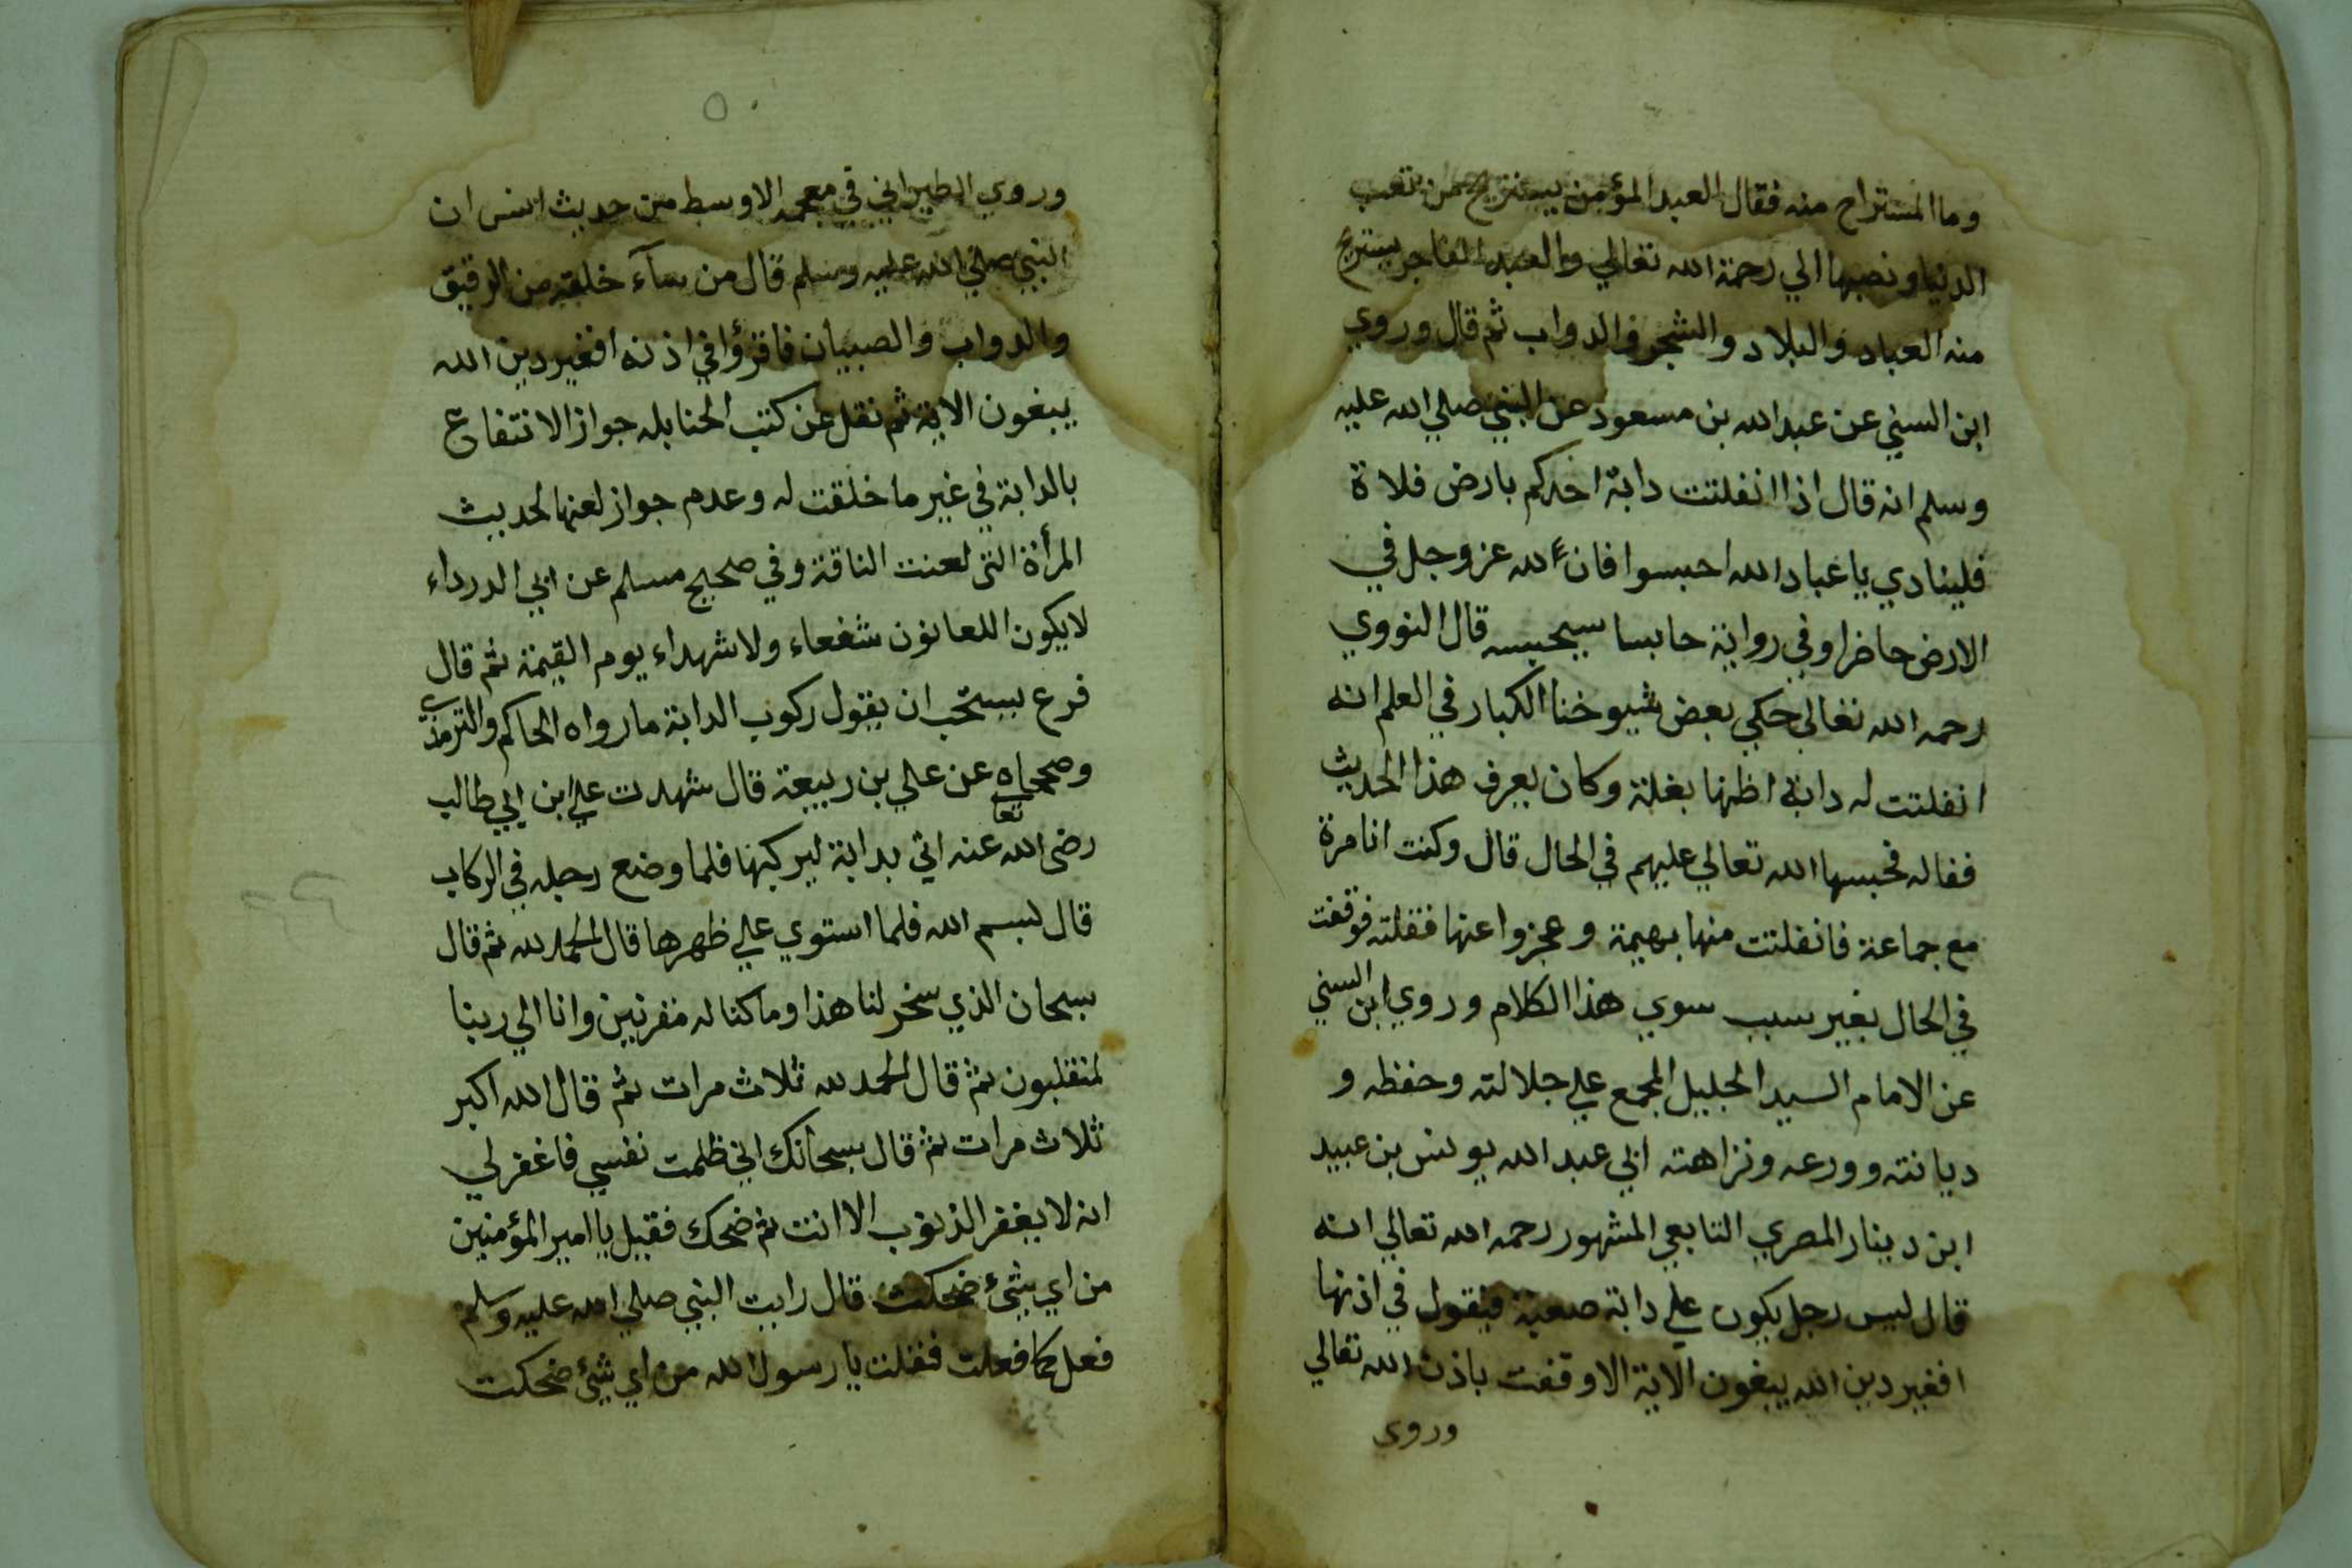 وما المستراح منه فقال العبد المؤمن يستريح من تعب
الدنيا ونصبها الي رحمة الله تعالي والعبد الفاجر يستريح
منه العباد والبلاد والشجر والدواب ثم قال وروي
ابن السني عن عبد الله بن مسعود عن النبي صلي الله عليه
وسلم انه قال اذا انفلتت دابة احدكم بارض فلاة
فلينادي يا عباد الله احبسوا فان لله عز وجل في
الارض حاضرا وفي رواية حابسا سيحبسه قال النووي
رحمه الله تعالي حكي بعض شيوخنا الكبار في العلم انه
انفلتت له دابة اظنها بغلة وكان يعرف هذا الحديث
فقاله فحبسها الله تعالي عليهم في الحال قال وكنت انا مرة
مع جماعة فانفلتت منها بهيمة وعجزوا عنها فقلته فوقفت
في الحال بغير سبب سوي هذا الكلام وروي ابن السني
عن الامام السيد الجليل المجمع علي جلالته وحفظه و
ديانته وورعه ونزاهته ابي عبد الله يونس بن عبيد
ابن دينار المصري التابعي المشهور رحمه الله تعالي انه
قال ليس رجل يكون علي دابة صعبة فيقول في اذنها
افغير دين الله يبغون الاية الا وقفت باذن الله تعالي
وروي
٥٠
وروي الطبراني في معجمه الاوسط من حديث انس ان
النبي صلي الله عليه وسلم قال من سآء خلقه من الرقيق
والدواب والصبيان فاقرؤا في اذنه افغير دين الله
يبغون الاية ثم نقل عن كتب الحنابله جواز الانتفاع
بالدابة في غير ما خلقت له وعدم جواز لعنها لحديث
المرأة التي لعنت الناقة وفي صحيح مسلم عن ابي الدرداء
لا يكون اللعانون شفعاء ولا شهداء يوم القيمة ثم قال
فرع يستحب ان يقول ركوب الدابة ما رواه الحاكم والترمذي
وصححاه عن علي بن ربيعة قال شهدت علي ابن ابي طالب
رضى الله تعا عنه اتي بدابة ليركبها فلما وضع رجله في الركاب
قال بسم الله فلما استوي علي ظهرها قال الحمد لله ثم قال
سبحان الذي سخر لنا هذا وما كنا له مقرنين وانا الي ربنا
لمنقلبون ثم قال الحمد لله ثلاث مرات ثم قال الله اكبر
ثلاث مرات ثم قال سبحانك اني ظلمت نفسي فاغفر لي
انه لا يغفر الذنوب الا انت ثم ضحك فقيل يا امير المؤمنين
من اي شئ ضحكت قال رايت النبي صلي الله عليه وسلم
فعل كما فعلت فقلت يا رسول الله من اي شئ ضحكت